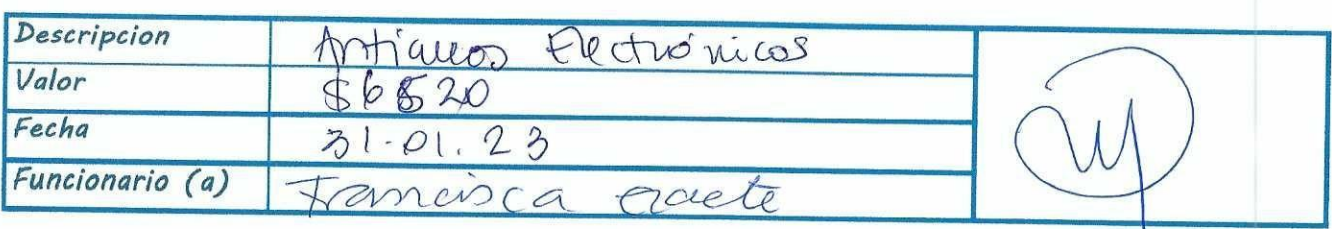 Descripcion Artículos Electrónicos
Valor $6820
Fecha 31-01.23
Funcionario (a) Francisca Gaete